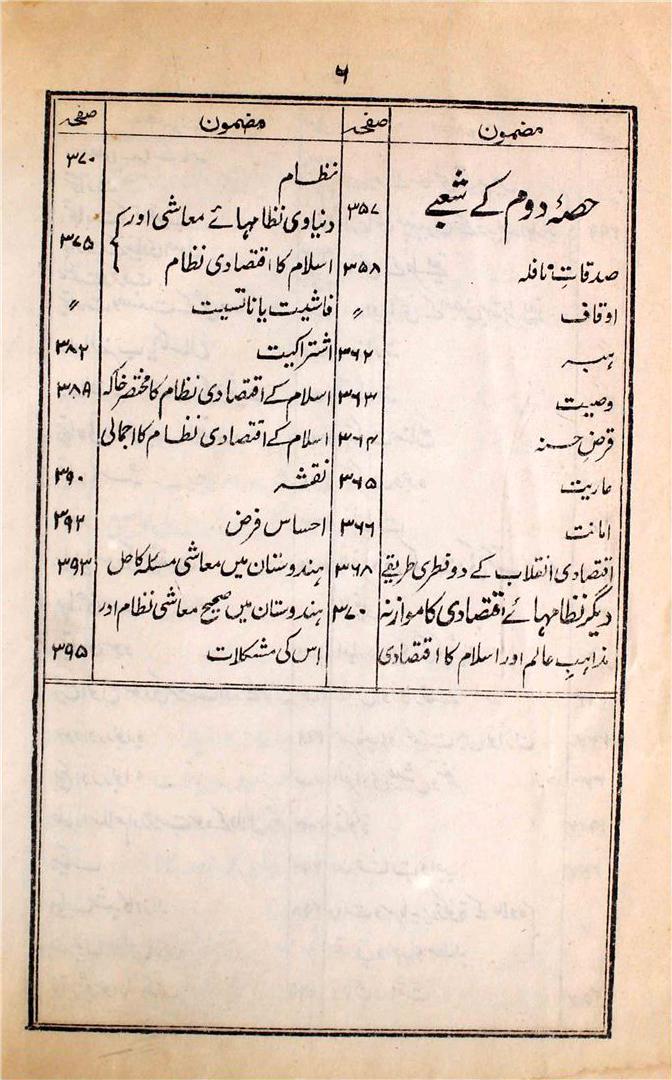 ۶
مضمون صفحہ
حصۂ دوم کے شعبے ۳۵۷
صدقاتِ نافلہ ۳۵۸
اوقاف 〃
ہبہ ۳۶۲
وصیت ۳۶۳
قرضِ حسنہ ۳۶۴
عاریت ۳۶۵
امانت ۳۶۶
اقتصادی انقلاب کے دو فطری طریقے ۳۶۸
دیگر نظامہائے اقتصادی کا موازنہ ۳۷۰
مذاہبِ عالم اور اسلام کا اقتصادی
مضمون صفحہ
نظام ۳۷۰
دنیاوی نظامہائے معاشی اور
اسلام کا اقتصادی نظام } ۳۷۵
فاشیت یا ناتسیت 〃
اشتراکیت ۳۸۲
اسلام کے اقتصادی نظام کا مختصر خاکہ ۳۸۹
اسلام کے اقتصادی نظام کا اجمالی
نقشہ ۳۹۰
احساس فرض ۳۹۲
ہندوستان میں معاشی مسئلہ کا حل ۳۹۳
ہندوستان میں صحیح معاشی نظام اور
اس کی مشکلات ۳۹۵